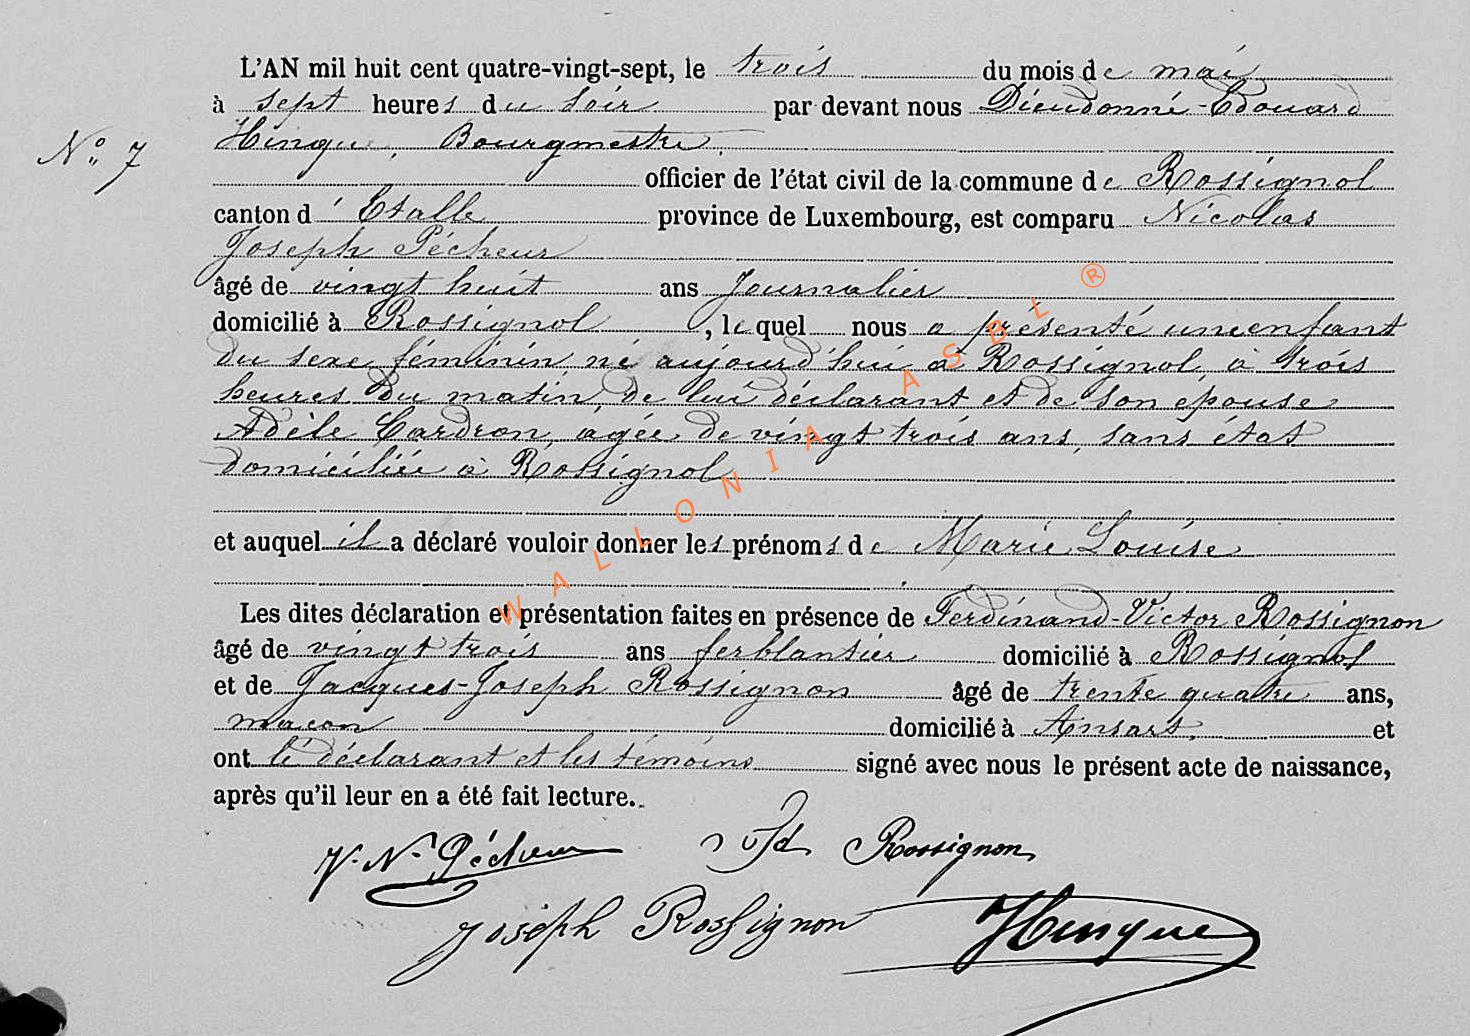 L'AN mil huit cent quatre-vingt-sept, le trois du mois de mai
à sept heures du soir par devant nous Dieudonné-Edouard
Hinque, Bourgmestre,
N° 7
officier de l'état civil de la commune de Rossignol
canton d'Etalle province de Luxembourg, est comparu Nicolas
Joseph Pécheur
âgé de vingt huit ans Journalier
domicilié à Rossignol, lequel nous a présenté un enfant
du sexe féminin, né aujourd'hui à Rossignol, à trois
heures du matin, de lui déclarant et de son epouse
Adèle Cardron, agée de vingt trois ans, sans état
domiciliée à Rossignol
et auquel il a déclaré vouloir donner les prénoms de Marie Louise
Les dites déclaration et présentation faites en présence de Ferdinand-Victor Rossignon
âgé de vingt trois ans ferblantier domicilié à Rossignol
et de Jacques-Joseph Rossignon âgé de trente quatre ans,
maçon domicilié à Ansart, et
ont le déclarant et les témoins signé avec nous le présent acte de naissance,
après qu'il leur en a été fait lecture.
J. N. Pécheur Rossignon
Joseph Rossignon Hinque
WALLONIA ASBL ®